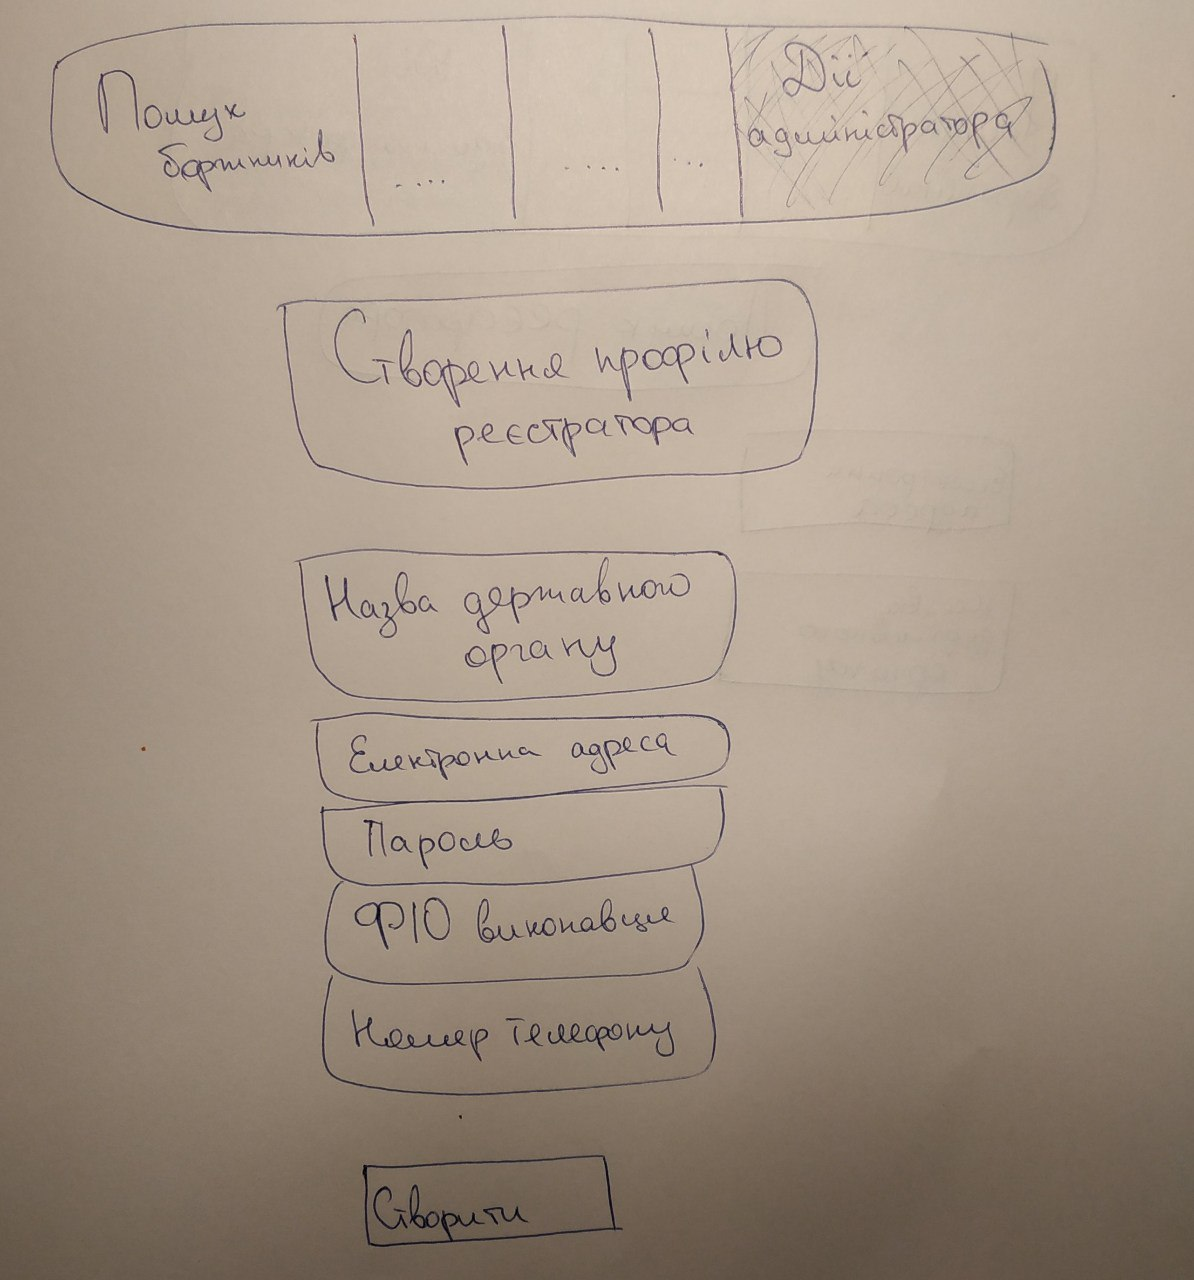 Пошук
боржників
....
....
...
Дії
адміністратора
Створення профілю
реєстратора
Назва державного
органу
Електронна адреса
Пароль
ФІО виконавця
Номер телефону
Створити